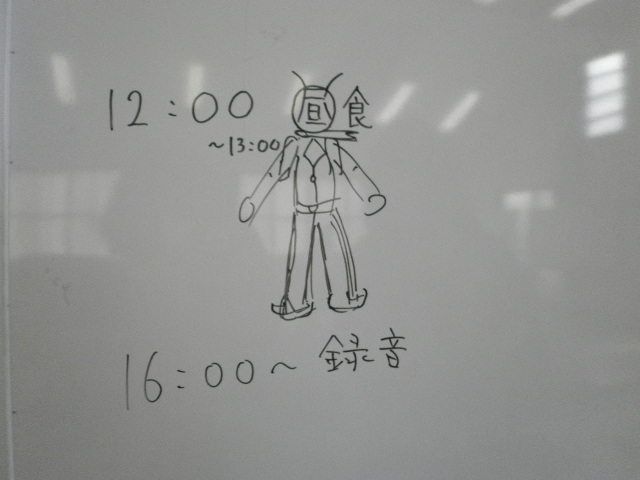 12:00 昼食
~13:00
16:00~ 録音